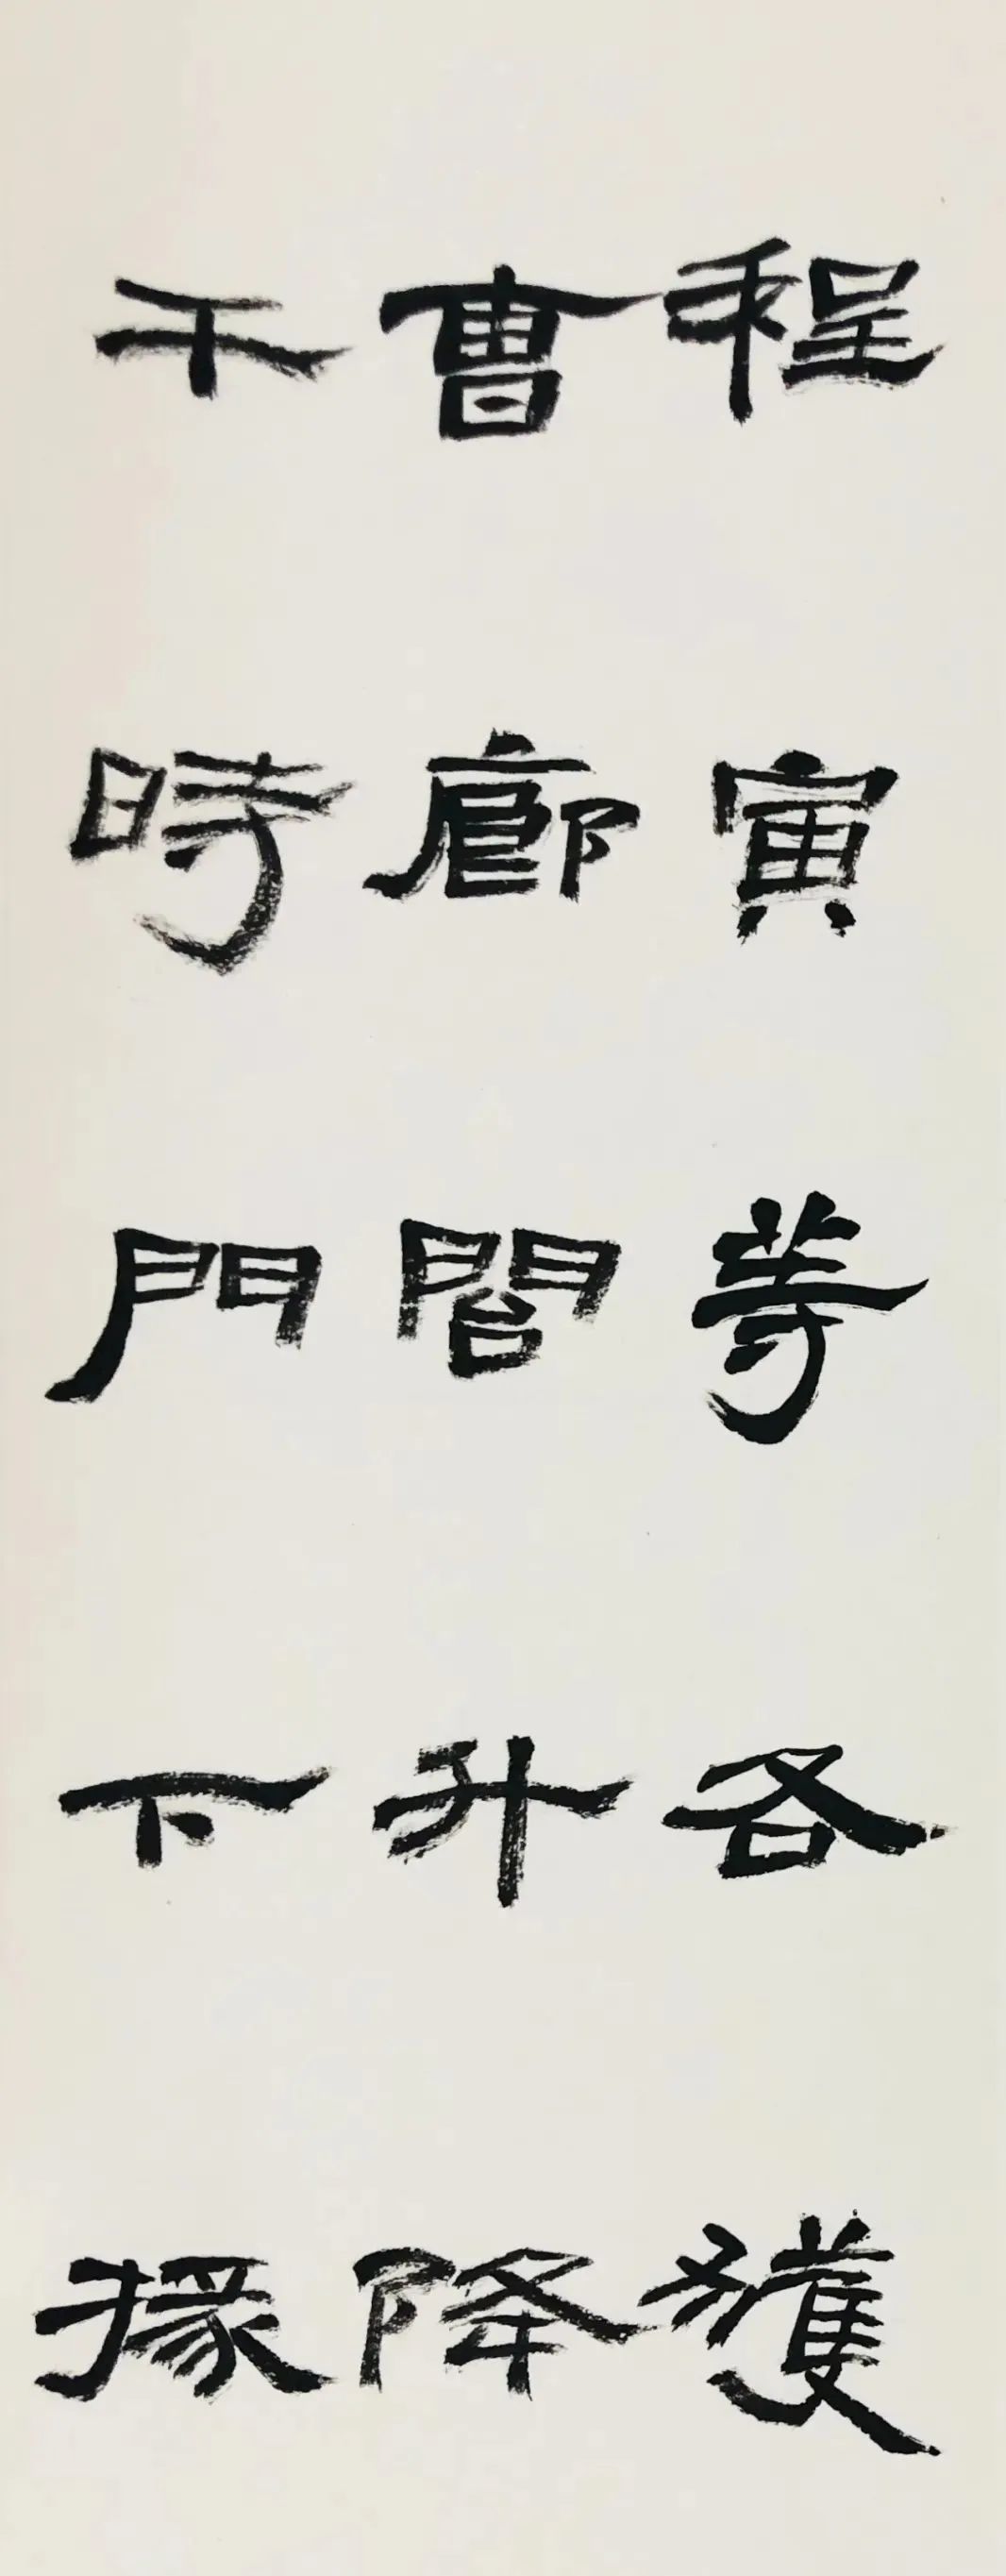 程寅等各獲
曹廊閣升降
干時門下掾